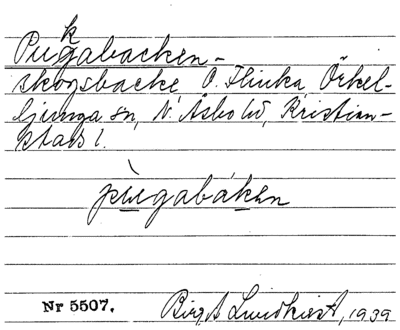 Pukgabacken -
skogsbacke, Ö. Flinka, Örkel-
ljunga sn, N. Åsbo hd, Kristian-
stads l.
pùgabáken
Nr 5507.
Birgit Lundkvist, 1939